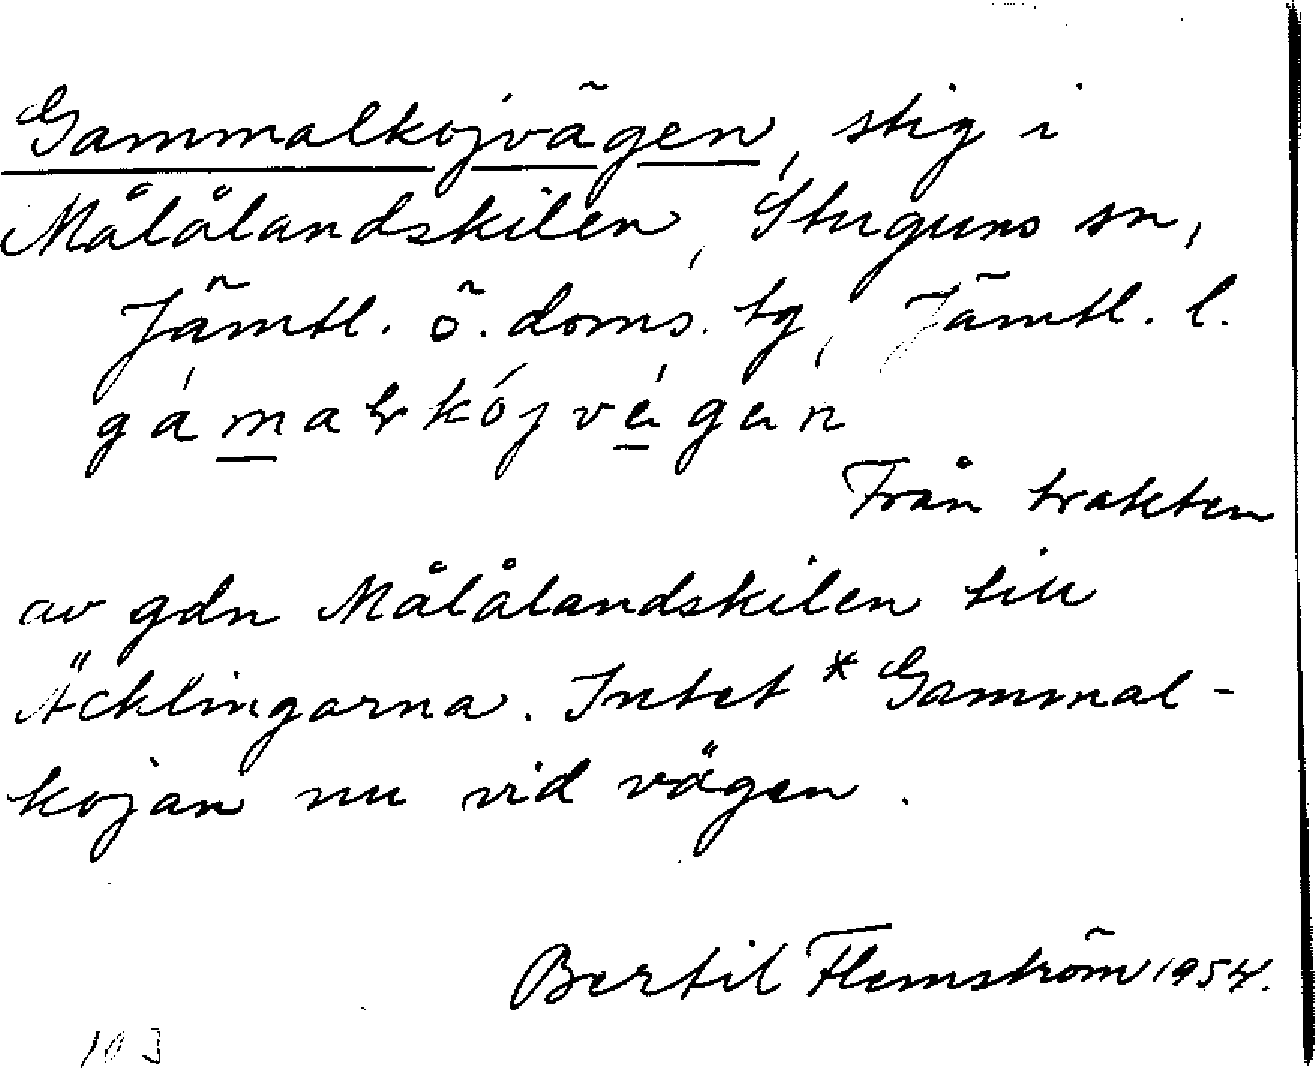 Gammalkojvägen, stig i
Målålandskilen, Stuguns sn,
Jämtl. ö. doms. tg, Jämtl. l.
Från trakten
av gdn Målålandskilen till
Äcklingarna. Intet *Gammal-
kojan nu vid vägen.
Bertil Flemström 1954.
103